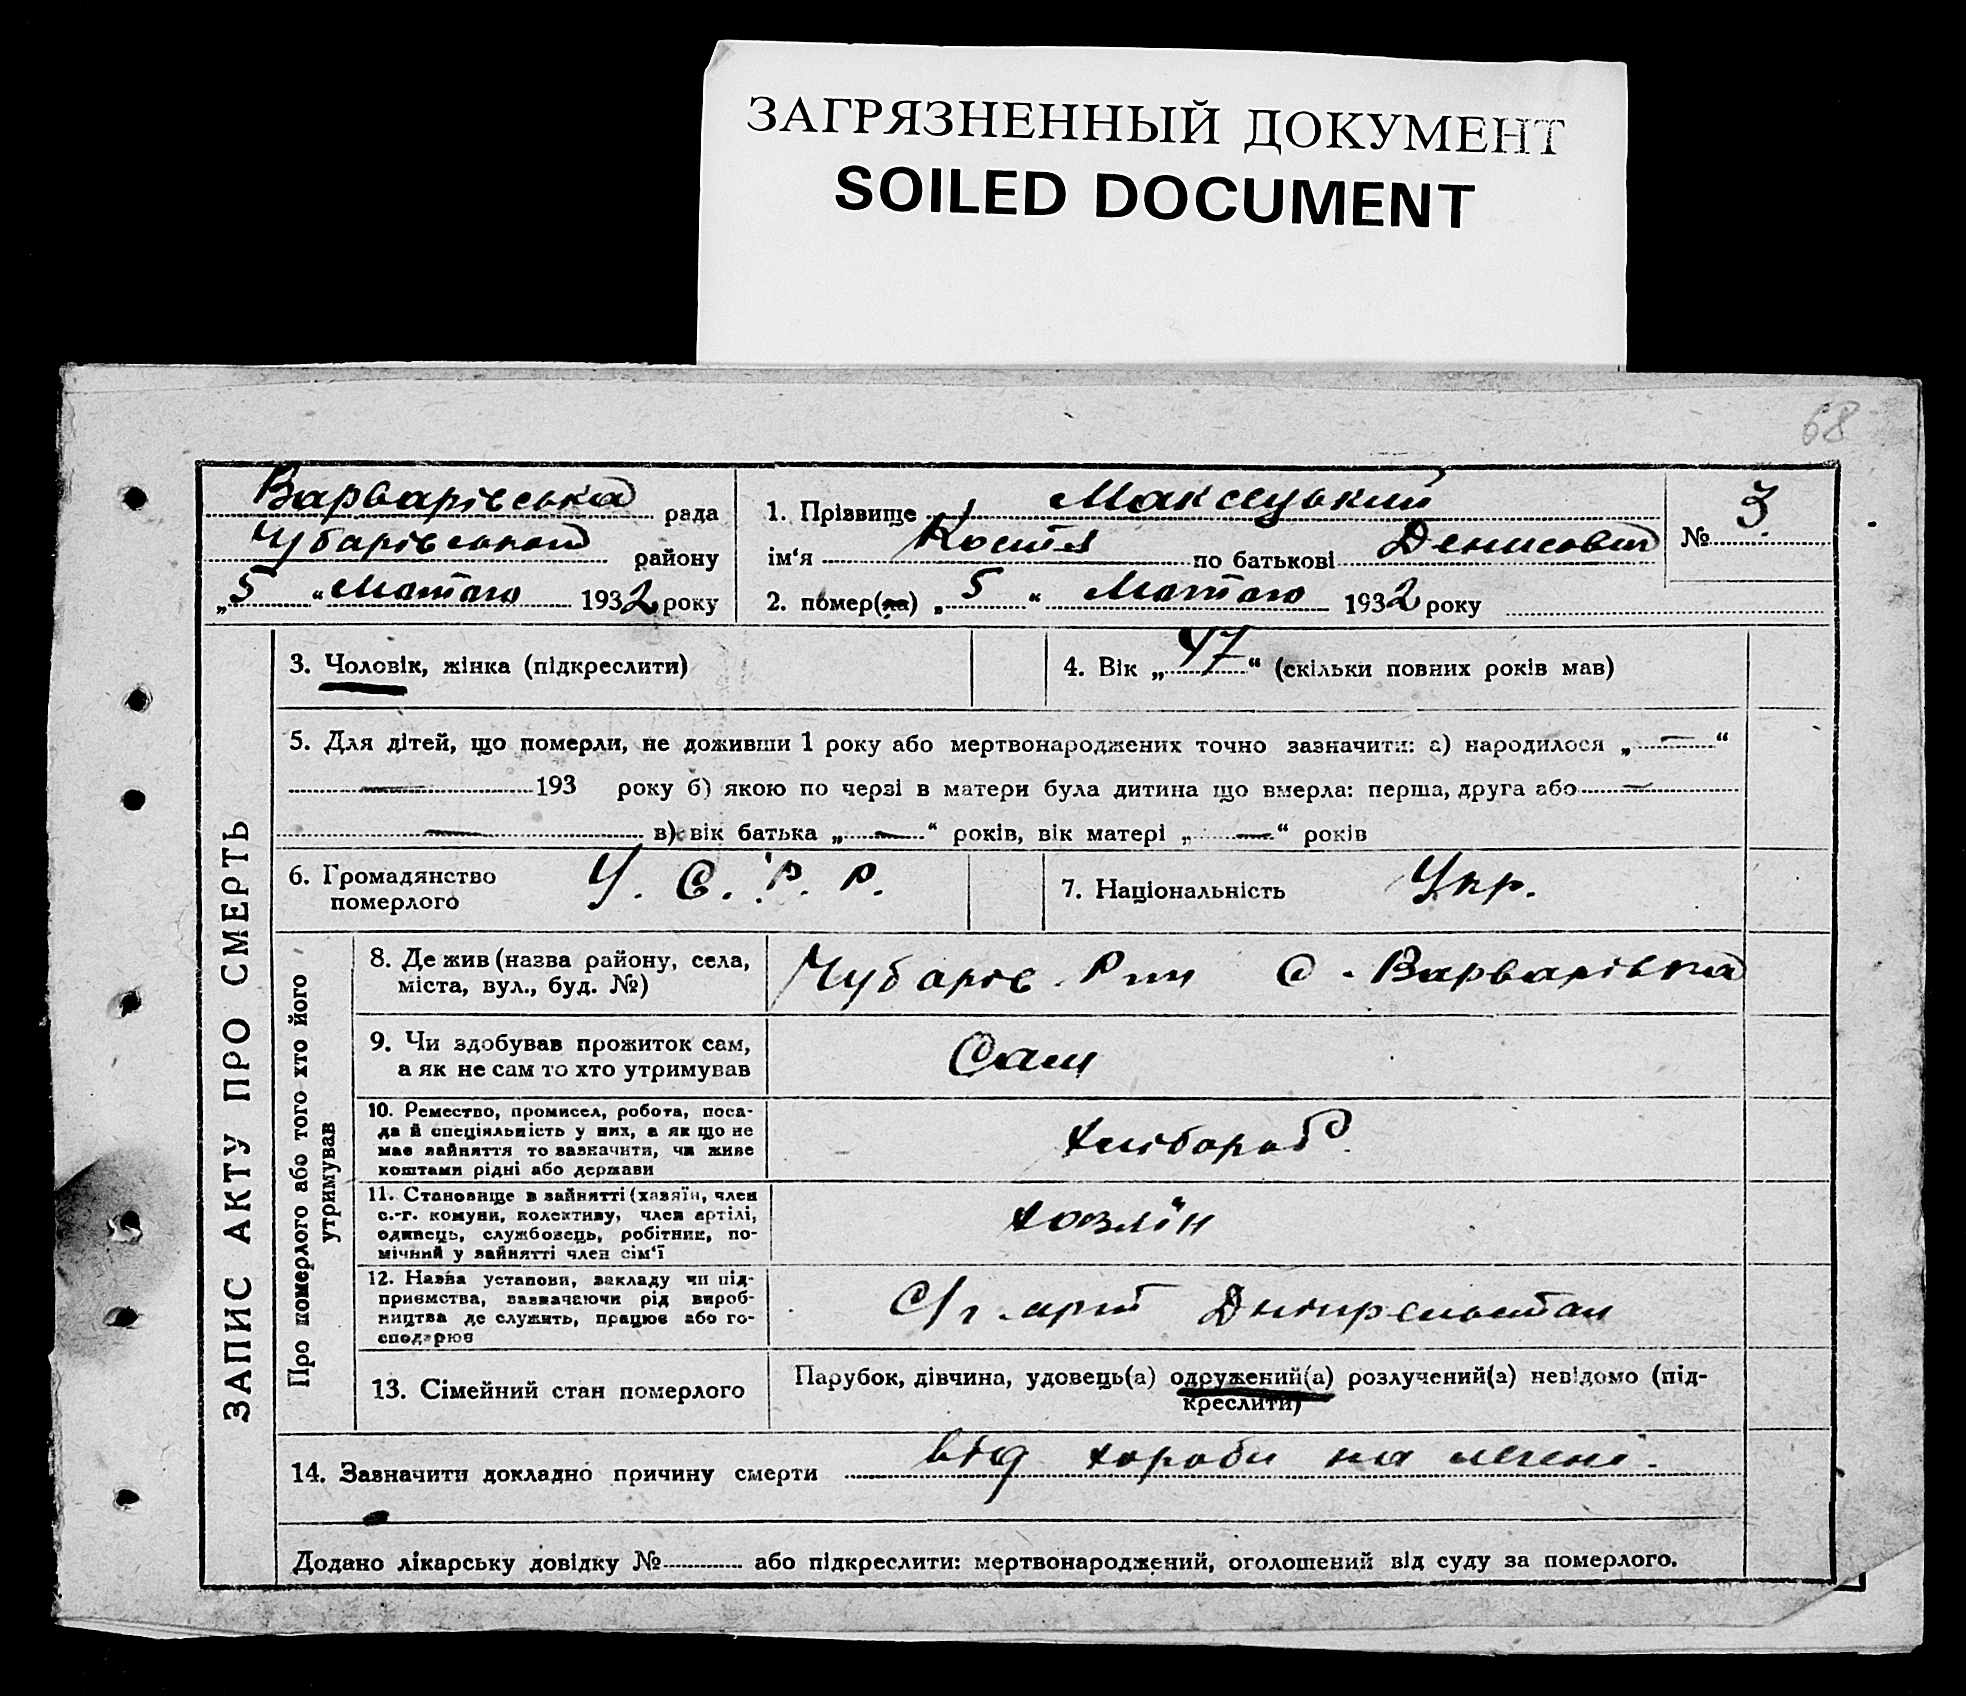 ЗАГРЯЗНЕННЫЙ ДОКУМЕНТ
SOILED DOCUMENT
68
Варварівська рада
Чубарівського району
„5“ Лютого 1932 року
1. Прізвище
ім‘я Костя по батькові Денисович
№ 3
2. помер(ла) „5“ Лютого 1932 року
ЗАПИС АКТУ ПРО СМЕРТЬ
3. Чоловік, жінка (підкреслити)
4. Вік „47“ (скільки повних років мав)
5. Для дітей, що померли, не доживши 1 року або мертвонароджених точно зазначити: а) народилося „—“
— 193 року б) якою по черзі в матери була дитина що вмерла: перша, друга або —
— в) вік батька „—“ років, вік матері „—“ років
6. Громадянство
померлого
У. С. Р. Р.
7. Національність Укр.
Про померлого або того хто його
утримував
8. Де жив (назва району, села,
міста, вул., буд. №)
Чубарів. Р-ну С. Варварівка
9. Чи здобував прожиток сам,
а як не сам то хто утримував
Сам
10. Ремество, промисел, робота, поса-
да й спеціяльність у них, а як що не
має зайняття то зазначити, чи живе
коштами рідні або держави
хлібороб
11. Становище в зайнятті (хазяїн, член
с.-г. комуни, колективу, член артілі,
одинець, службовець, робітник, по-
мічний у зайнятті член сім‘ї
хозяїн
12. Назва установи, закладу чи під-
приємства, зазначаючи рід вироб-
ництва де служить, працює або го-
сподарює
С/г. арт
13. Сімейний стан померлого
Парубок, дівчина, удовець(а) одружений(а) розлучений(а) невідомо (під-
креслити)
14. Зазначити докладно причину смерти від хороби на легені.
Додано лікарську довідку № або підкреслити: мертвонароджений, оголошений від суду за померлого.